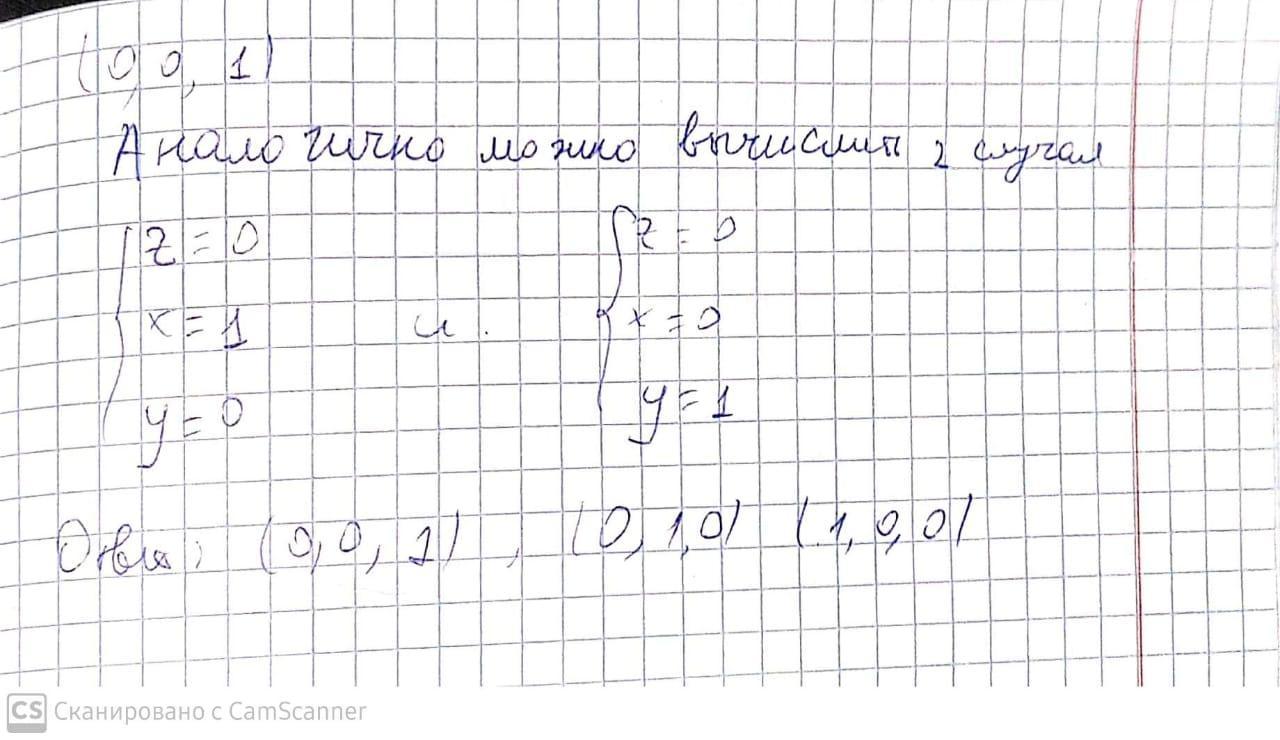 (0, 0, 1)
Аналогично можно вычислить 2 случая
z = 0 z = 0
x = 1 и x = 0
y = 0 y = 1
Ответ: (0, 0, 1), (0, 1, 0) (1, 0, 0)
CS Сканировано с CamScanner